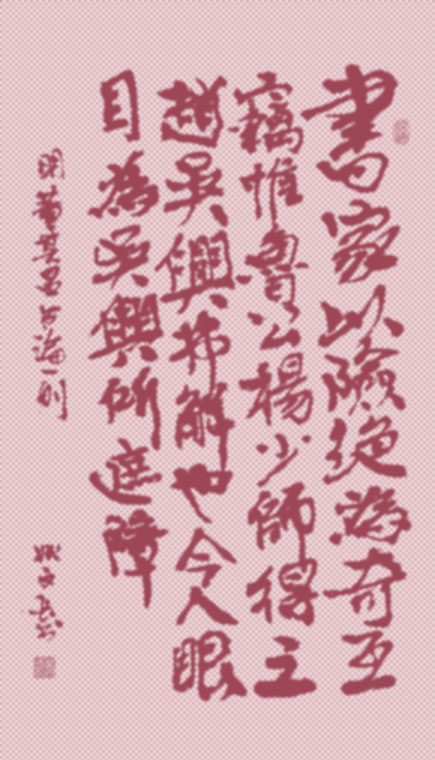 書家以險絕為奇此
竅惟魯公楊少師得之
趙吳興弗解也今人眼
目為吳興所遮障
明董其昌書論一則